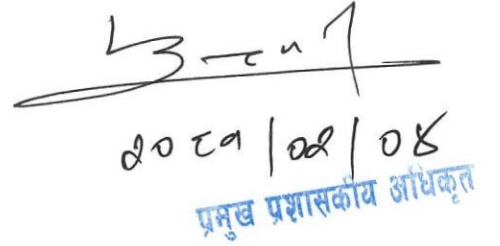 २०८१|०२|०४
प्रमुख प्रशासकीय अधिकृत